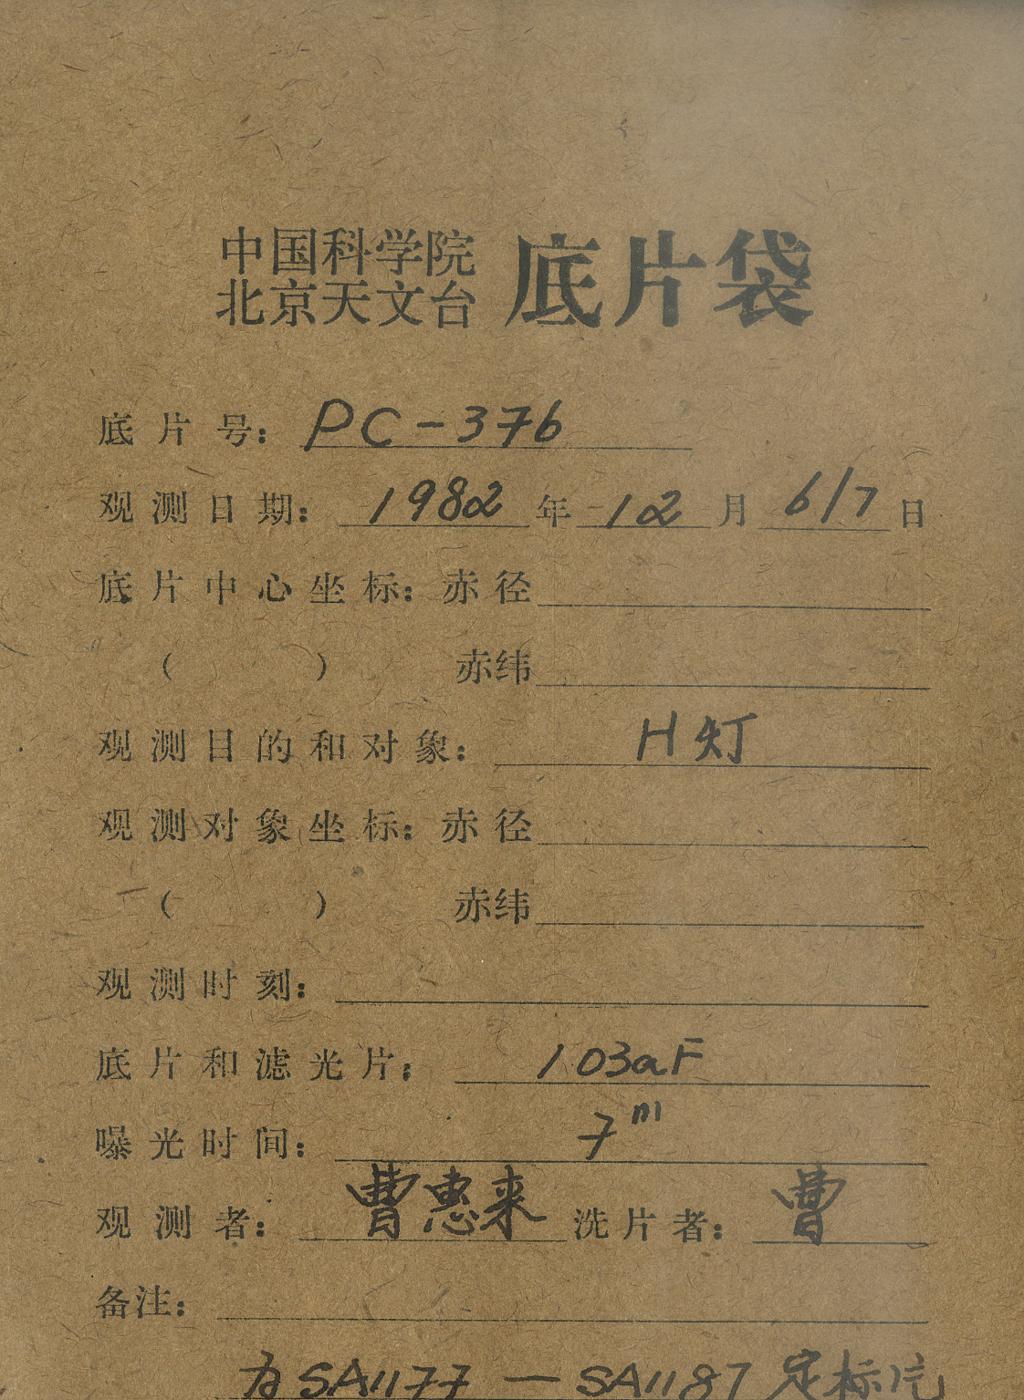 中国科学院
北京天文台 底片袋
底片号: PC-376
观测日期: 1982年12月6/7日
底片中心坐标: 赤径
( ) 赤纬
观测目的和对象: H灯
观测对象坐标: 赤径
( ) 赤纬
观测时刻:
底片和滤光片: 103aF
曝光时间: 7m
观测者: 曹惠来 洗片者: 曹
备注:
为SA1177—SA1187定标片